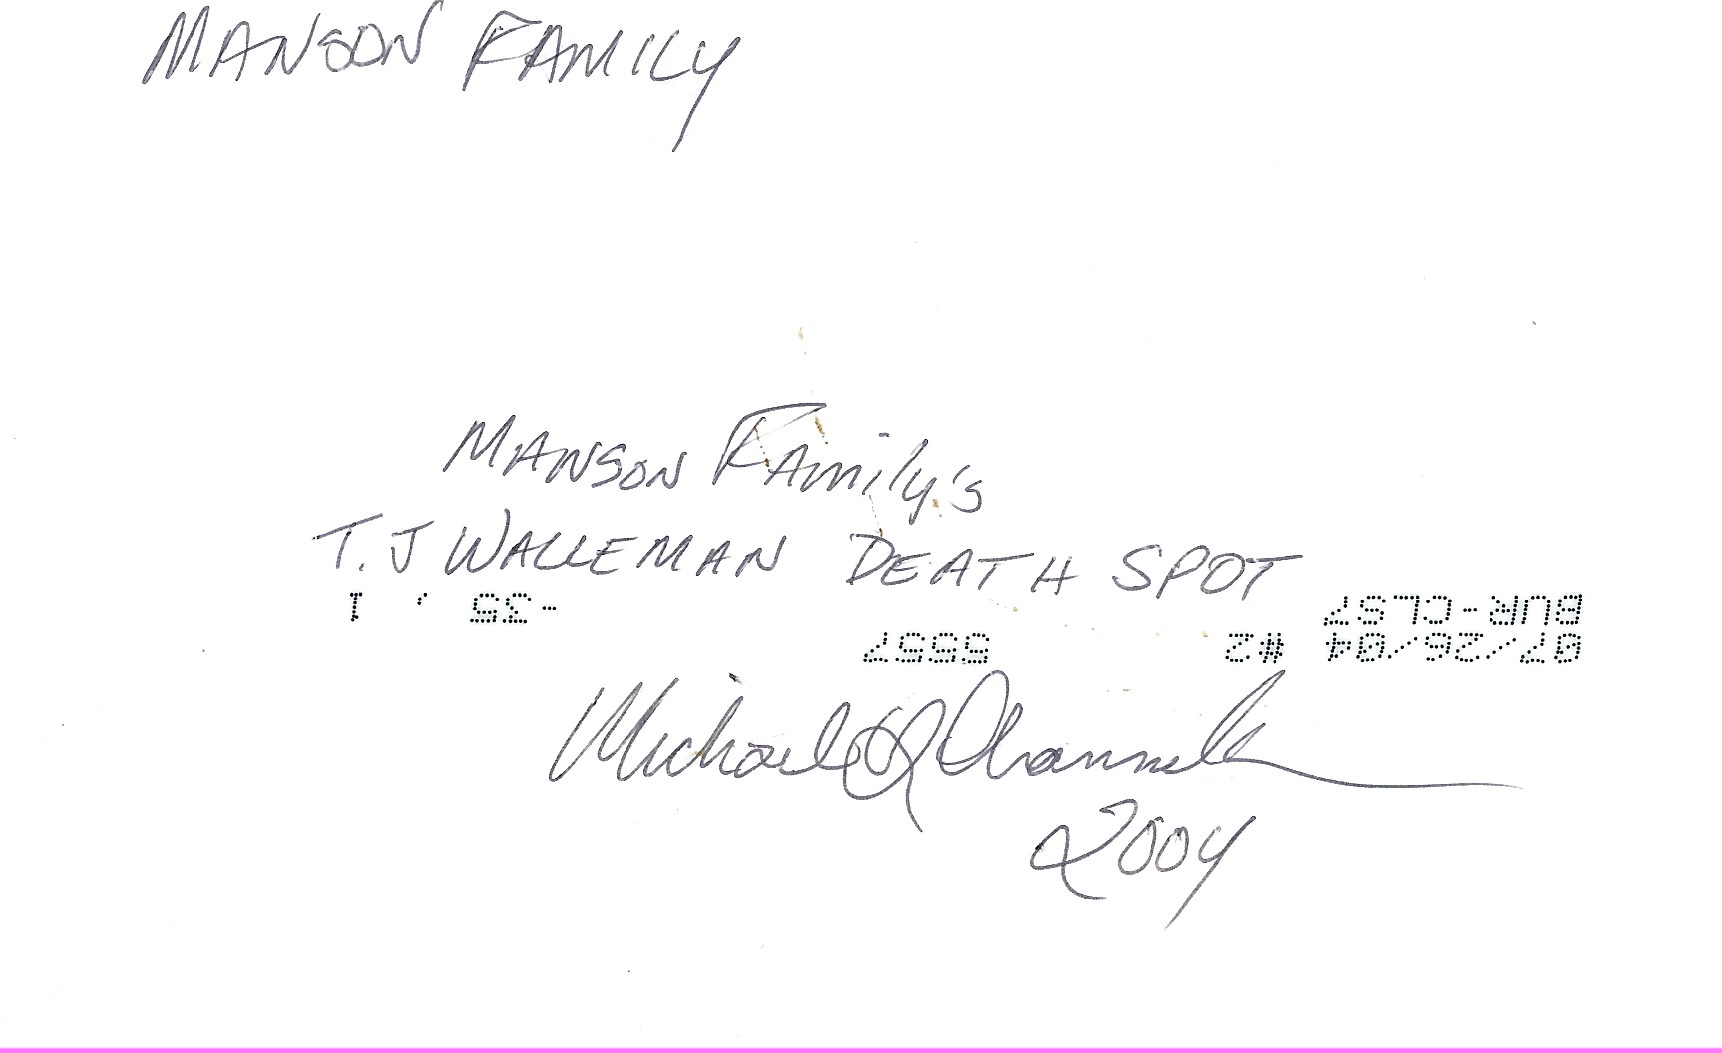 MANSON FAMILY
MANSON FAmily's
T.J WALLEMAN DEATH SPOT
07/26/04 #2 5557
BUR-CLS7 -35 , 1
Michael Channels
2004